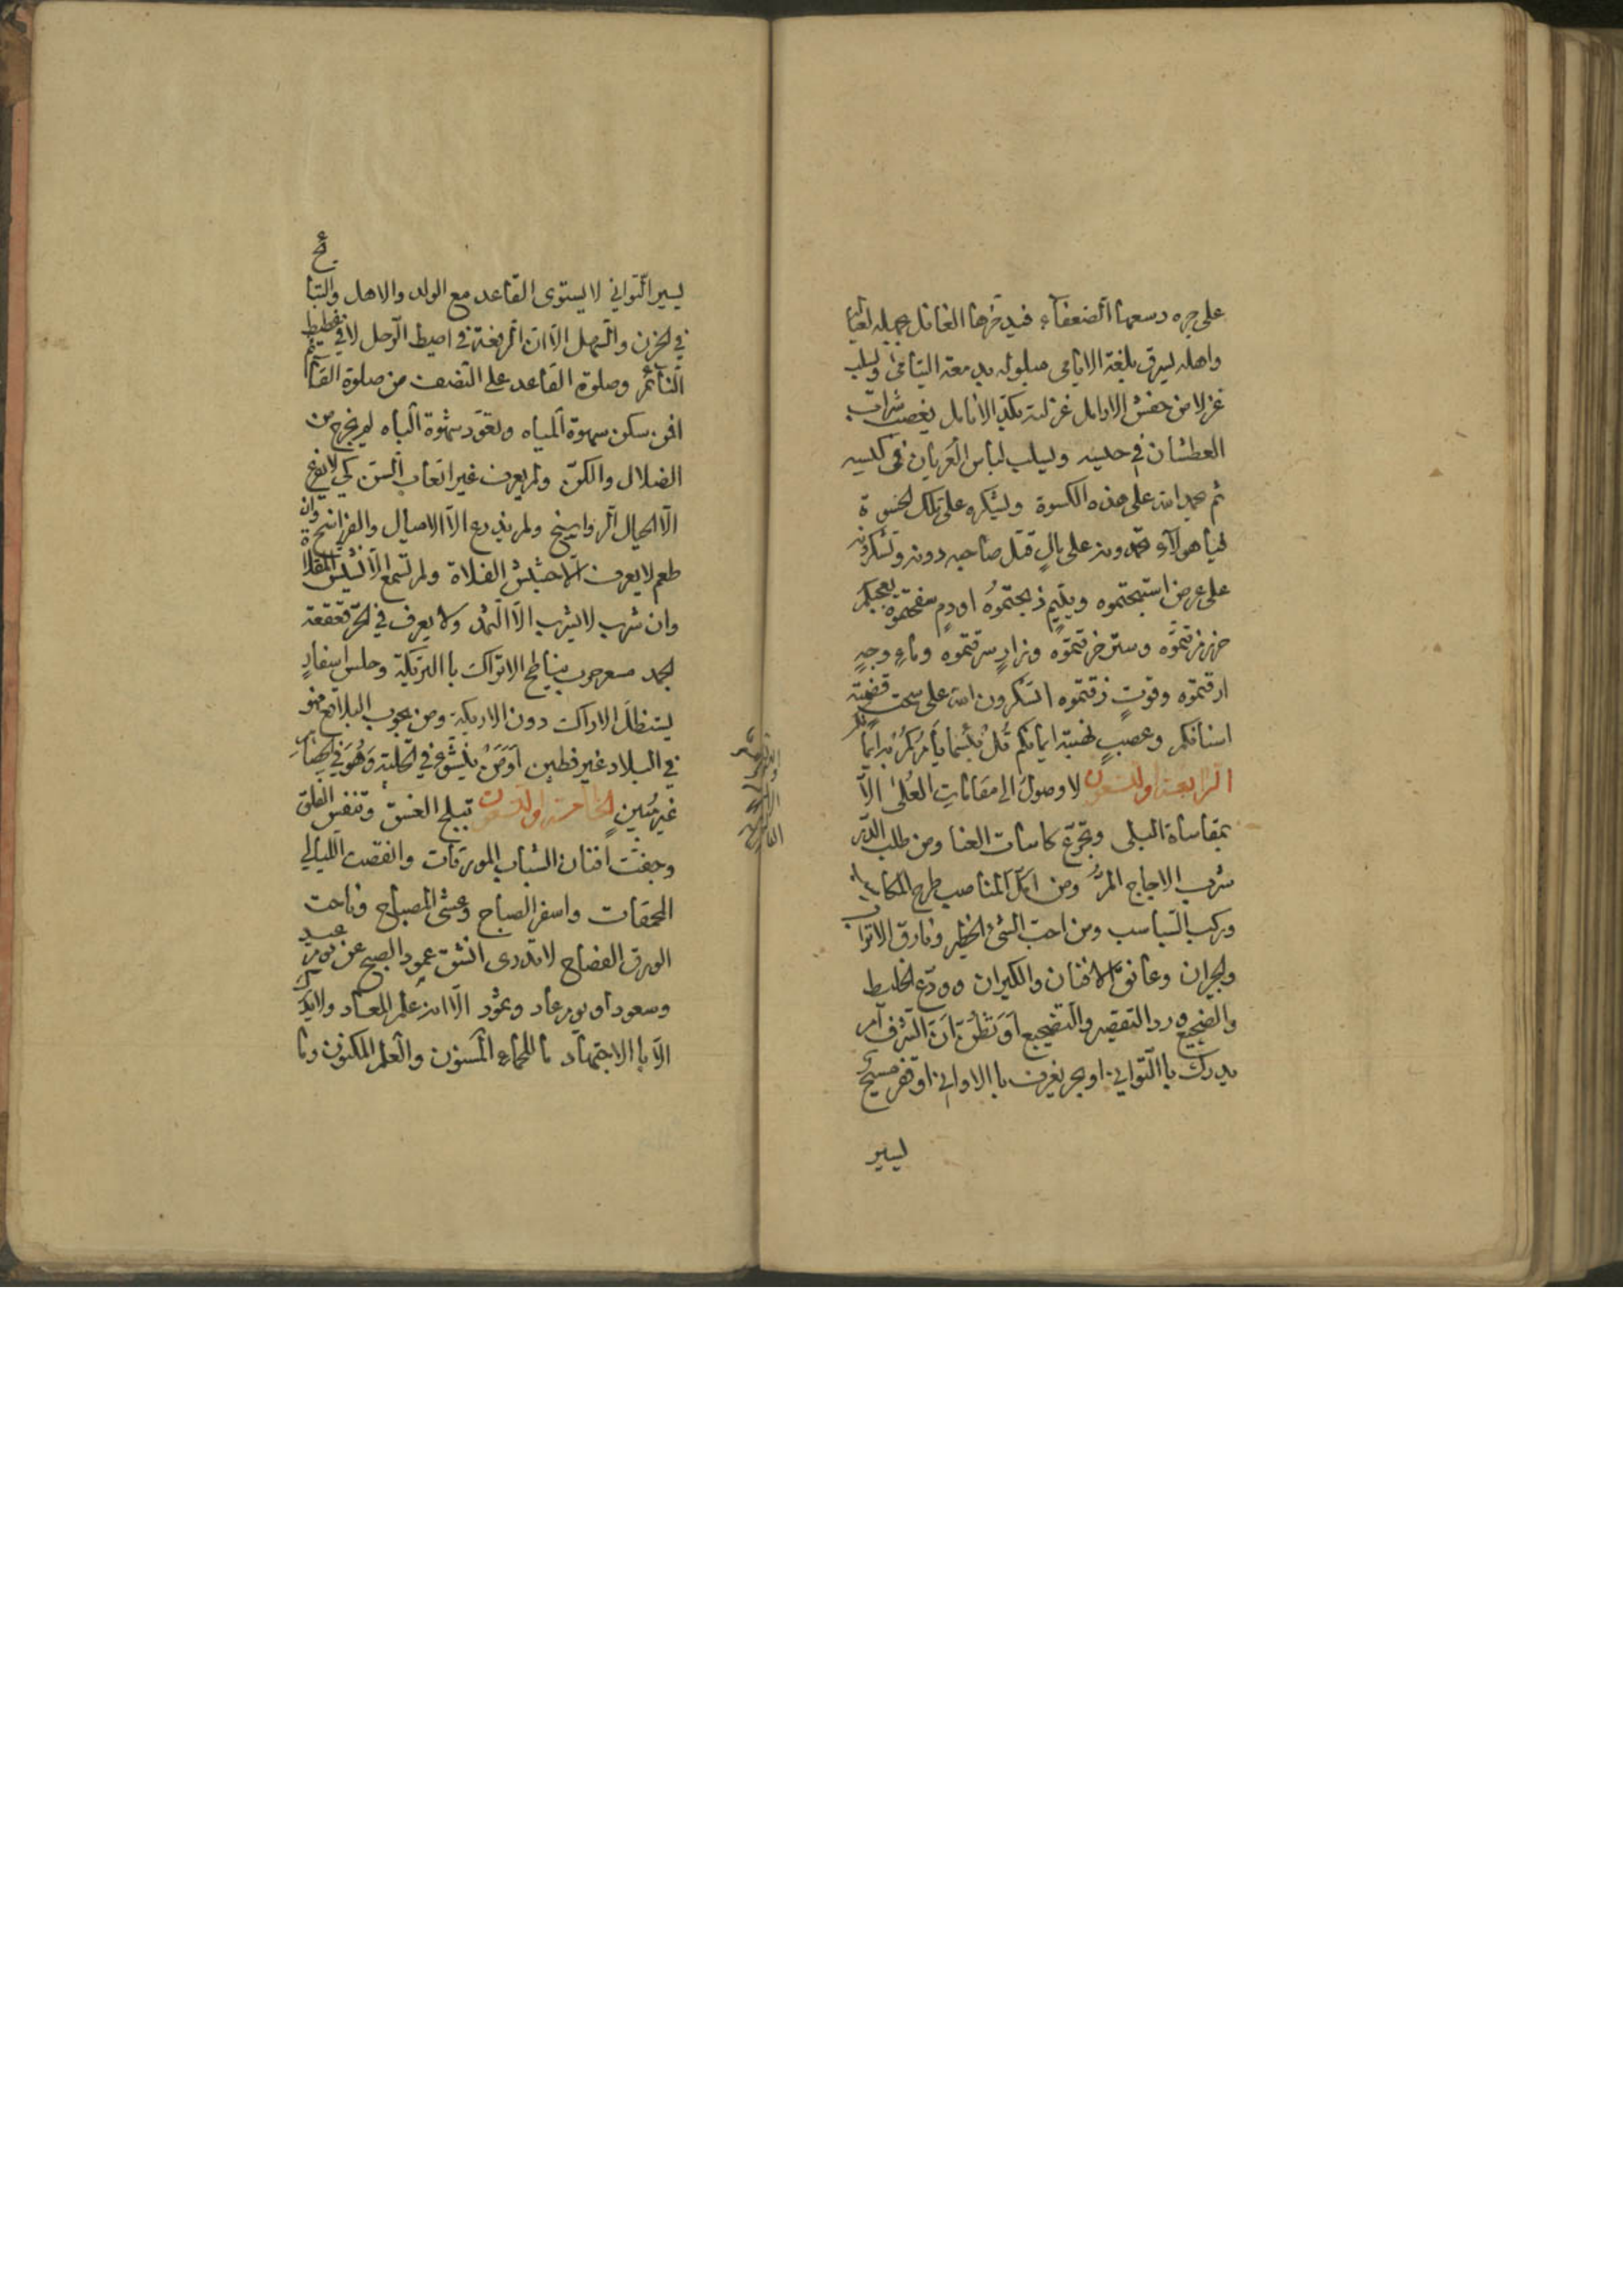 على جره دسعها الضعفاء فيدخرها الغافل لعياله
واهله ليسرق بلغة الايامى مبلوله بدمعة اليتامى وليسلب
غزلا من حفش الارامل غزلته بكد الانامل يغصب شراب
العطشان في حلسه ويسلب لباس العريان في كيسه
ثم يحمد الله على هذه الكسوة ويشكره على تلك الحسوة
فيا هؤلاء تحمدونه على بال قتل صاحبه دونه وتشكرونه
على عرض استبحتموه ويتيم ذبحتموه او دم سفحتموه
خرزتموه وستر خرقتموه وزاد سرقتموه وماء وجه
ارقتموه وقوت زقتموه اتشكرون الله على سحت قضمته
اسنانكم وعصب نهبته ايمانكم قل بئسما يأمركم به ايمانكم
الرابعة والتسعون لا وصول الى مقامات العلى الا
بمقاساة البلى وتجرع كاسات العنا ومن طلب الدر
شرب الاجاج المر ومن امل المناصب طرح المكاسب
وركب السباسب ومن احب الشئ الخطير وفارق الاتراب
والجيران وعانق الافنان والكيران وودع الخليط
والضجيع ورد التقصير والتضجيع او تظن ان الشرف امر
يدرك باالتواني او بحر يغرف باالاواني او قفر مسيح
ليسير
يسير التواني لا يستوى القاعد مع الولد والاهل والتباع
في الحزن والسهل الا ان الرفعة في اصيط الرحل لا في غطيط
النائم وصلوة القاعد على النصف من صلوة القائم
افمن سكن سهوة المياه وتعود شهوة الباه لم يخرج من
الضلال والكن ولم يعرف غير اتعاب السن كمن لا يفرح
الا الجبال الرواسخ ولم يذرع الا الاميال والفراسخ وان
طعم لا يعرف الا حشيش الفلاة ولم تسمع الا نشيش المقلاة
وان شرب لا يشرب الا الثمد ولا يعرف في الحر قعقعة
الجمد مسعر حرب يناطح الاتراك باالتريكة وحلس اسفار
يستظل الاراك دون الاريكة ومن يجوب البلاقع فهو
في البلاد غير قطين اومن ينشؤ في الحلية وهو في الخصام
غير مبين الخامسة والتسعون تبلج الغسق وتنفس الفلق
وجفت افنان الشباب المورقات وانقضت الليالي
المحمقات واسفر الصباح وعشى المصباح وناحت
الورق الفضاح لا تدرى انشق عمود الصبح عن يوم عيد
وسعود او يوم عاد وثمود الا انه علم المعاد ولا يدرك
الا باالاجتهاد ما للحماء المسنون والعلم المكنون وما